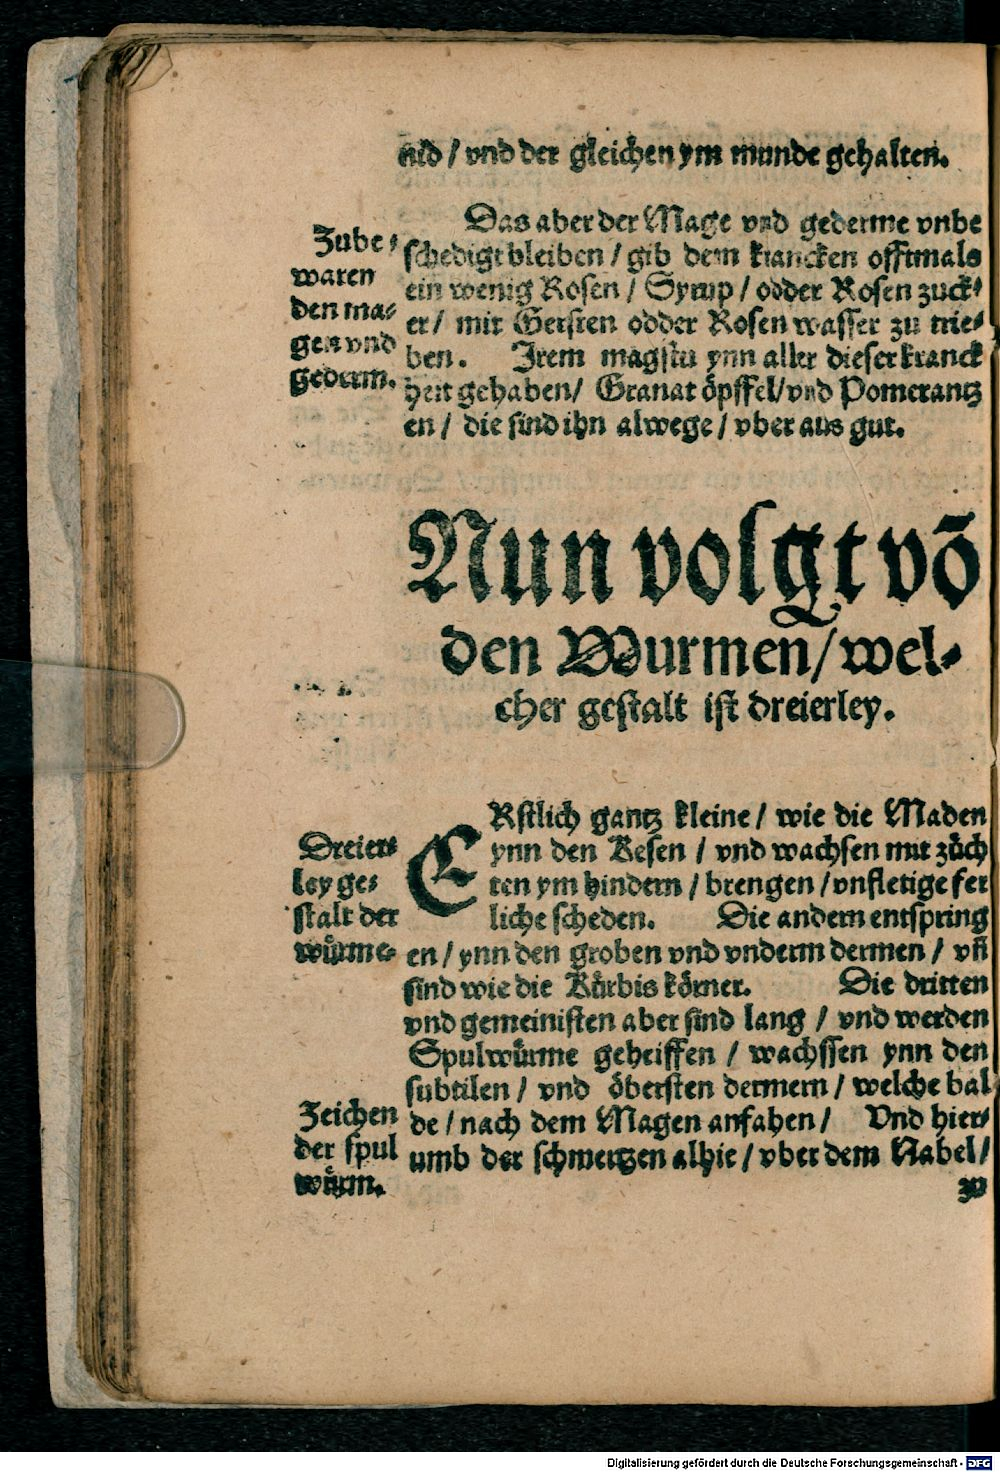 nid / vnd der gleichen ym munde gehalten.
Zube-
waren
den ma-
gen vnd
gederm.
Das aber der Mage vnd gederme vnbe
schedigt bleiben / gib dem krancken offtmals
ein wenig Rosen / Syrup / odder Rosen zuck-
er / mit Gersten odder Rosen wasser zu trie-
ben. Item magstu ynn aller dieser kranck
heit gehaben / Granat öpffel / vnd Pomerantz
en / die sind ihn alwege / vber aus gut.
Nun volgt võ
den Wurmen / wel-
cher gestalt ist dreierley.
Dreier-
ley ge-
stalt der
würme.
ERstlich gantz kleine / wie die Maden
ynn den Kesen / vnd wachsen mit züch
ten ym hindern / brengen / vnfletige fer
liche scheden. Die andern entspring
en / ynn den groben vnd vndern dermen / vñ
sind wie die Kürbis körner. Die dritten
vnd gemeinisten aber sind lang / vnd werden
Spulwürme geheissen / wachssen ynn den
subtilen / vnd öbersten dermern / welche bal
de / nach dem Magen anfahen / Vnd hier-
umb der schmertzen alhie / vber dem Nabel /
Zeichen
der spul
würm.
zu
Digitalisierung gefördert durch die Deutsche Forschungsgemeinschaft - DFG